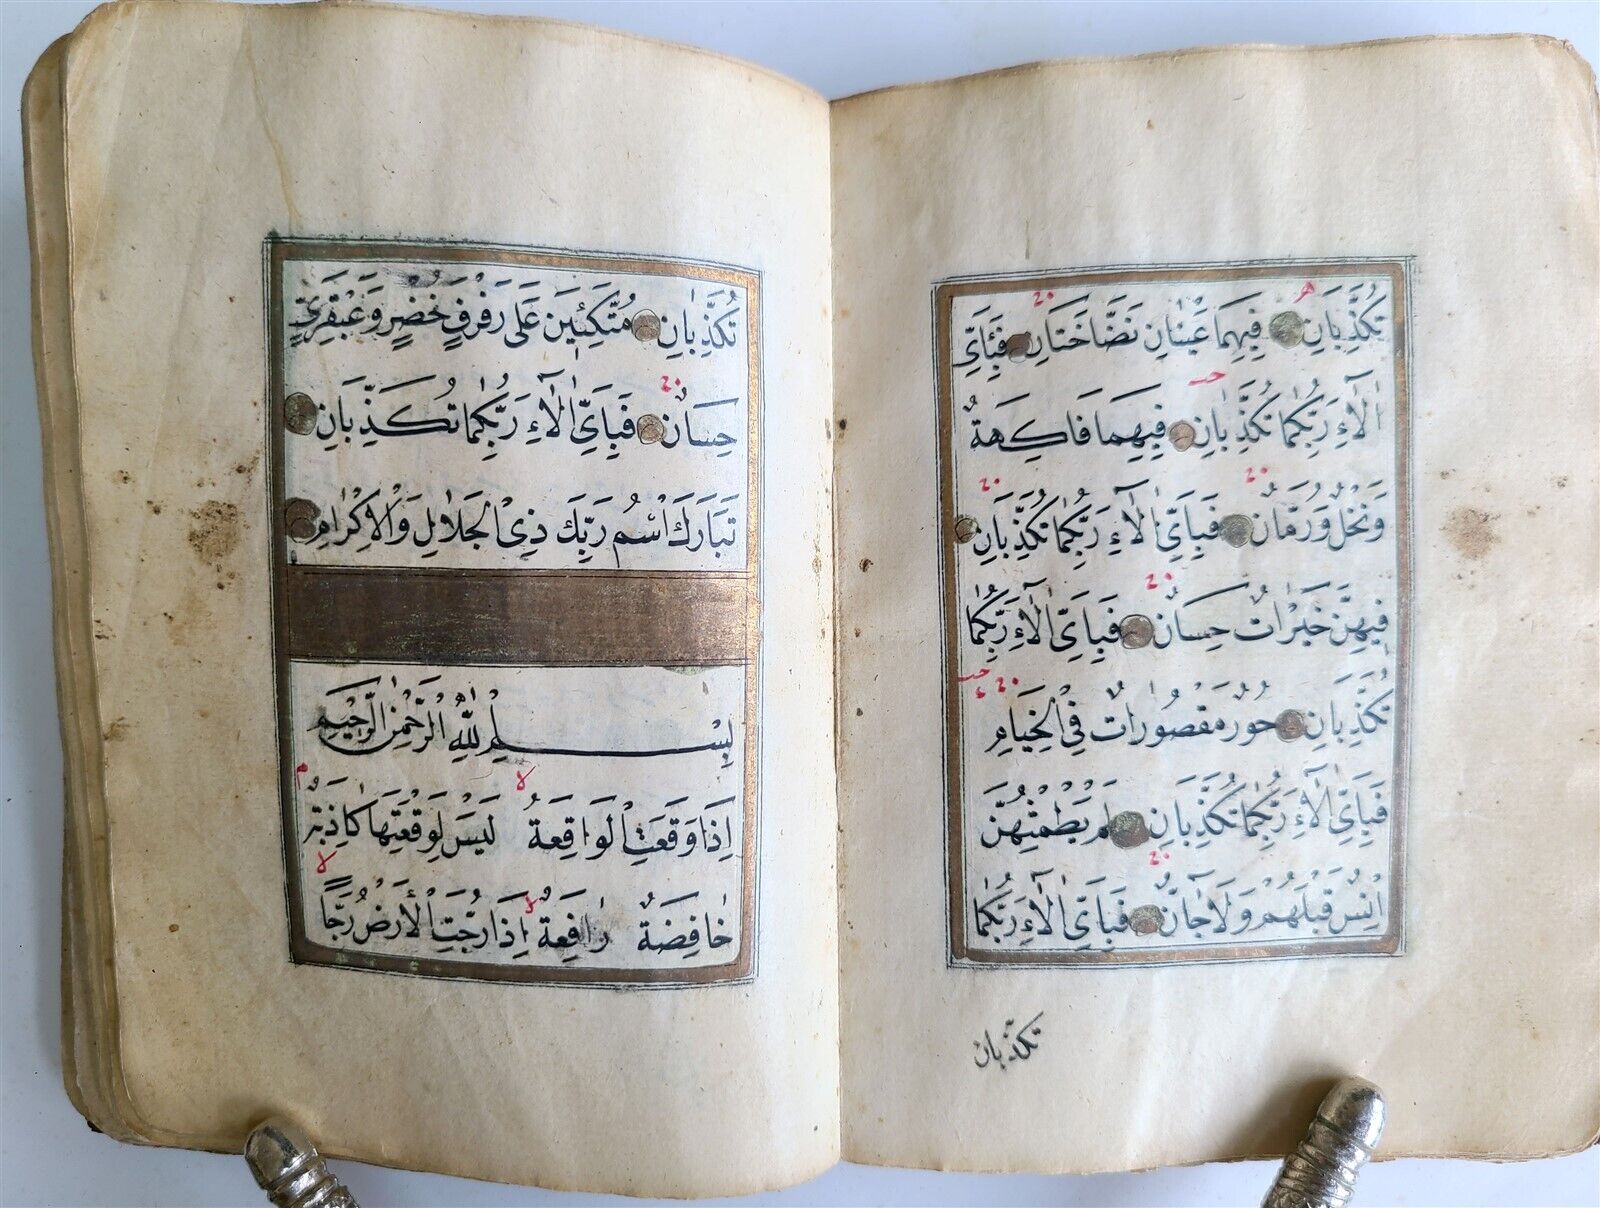 تُكَذِّبَانِ فِيهِمَا عَيْنَانِ نَضَّاخَتَانِ فَبِاَىِّ
اٰلَاءِ رَبِّكُمَا تُكَذِّبَانِ فِيهِمَا فَاكِهَةٌ
وَنَخْلٌ وَرُمَّانٌ فَبِاَىِّ اٰلَاءِ رَبِّكُمَا تُكَذِّبَانِ
فِيهِنَّ خَيْرَاتٌ حِسَانٌ فَبِاَىِّ اٰلَاءِ رَبِّكُمَا
تُكَذِّبَانِ حُورٌ مَقْصُورَاتٌ فِى الْخِيَامِ
فَبِاَىِّ اٰلَاءِ رَبِّكُمَا تُكَذِّبَانِ لَمْ يَطْمِثْهُنَّ
اِنْسٌ قَبْلَهُمْ وَلَا جَانٌّ فَبِاَىِّ اٰلَاءِ رَبِّكُمَا
تكذبان
تُكَذِّبَانِ مُتَّكِئِينَ عَلٰى رَفْرَفٍ خُضْرٍ وَعَبْقَرِىٍّ
حِسَانٍ فَبِاَىِّ اٰلَاءِ رَبِّكُمَا تُكَذِّبَانِ
تَبَارَكَ اسْمُ رَبِّكَ ذِى الْجَلَالِ وَالْاِكْرَامِ
بِسْمِ اللّٰهِ الرَّحْمٰنِ الرَّحِيمِ
اِذَا وَقَعَتِ الْوَاقِعَةُ لَيْسَ لِوَقْعَتِهَا كَاذِبَةٌ
خَافِضَةٌ رَافِعَةٌ اِذَا رُجَّتِ الْاَرْضُ رَجًّا